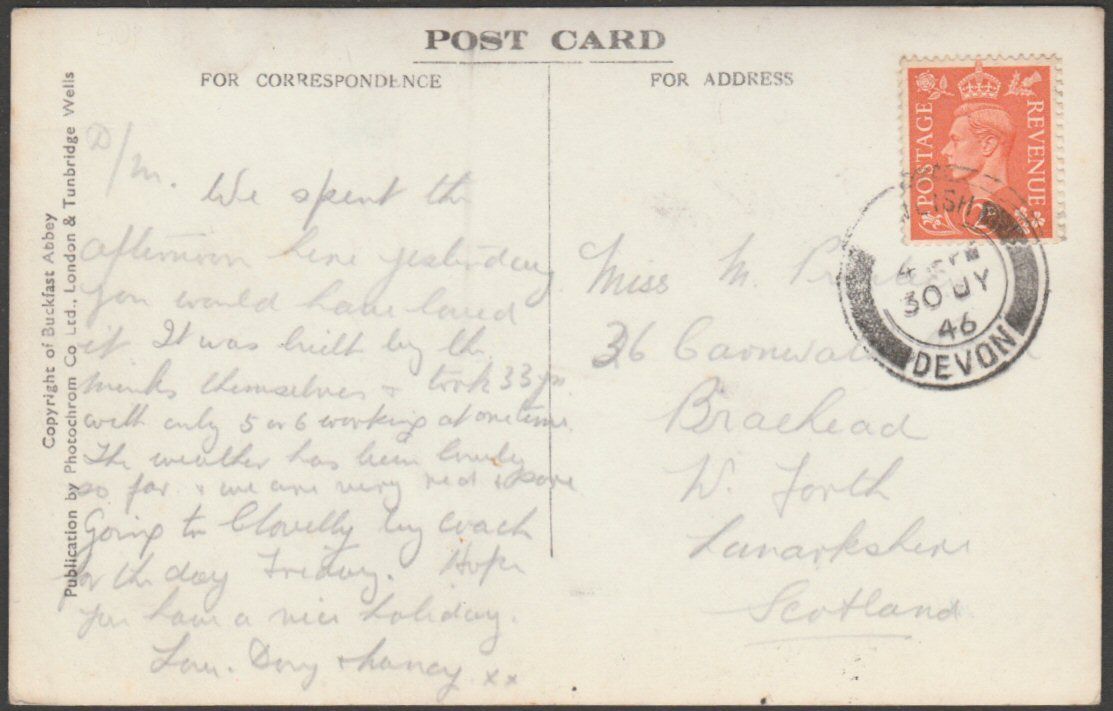 POST CARD
FOR CORRESPONDENCE
FOR ADDRESS
Copyright of Buckfast Abbey
Publication by Photochrom Co Ltd., London & Tunbridge Wells
D/M. We spent the
afternoon here yesterday
you would have loved
it It was built by the
monks themselves & took 33 yrs
with only 5 or 6 working at one time.
The weather has been lovely
so far & we are very red & sore
Going to Clovelly by coach
for the day Friday. Hope
you have a nice holiday.
Love. Dory & Nancy. xx
Miss M.
36
Braehead
W. Forth
Lanarkshire
Scotland
POSTAGE
REVENUE
4
30 JY
46
DEVON